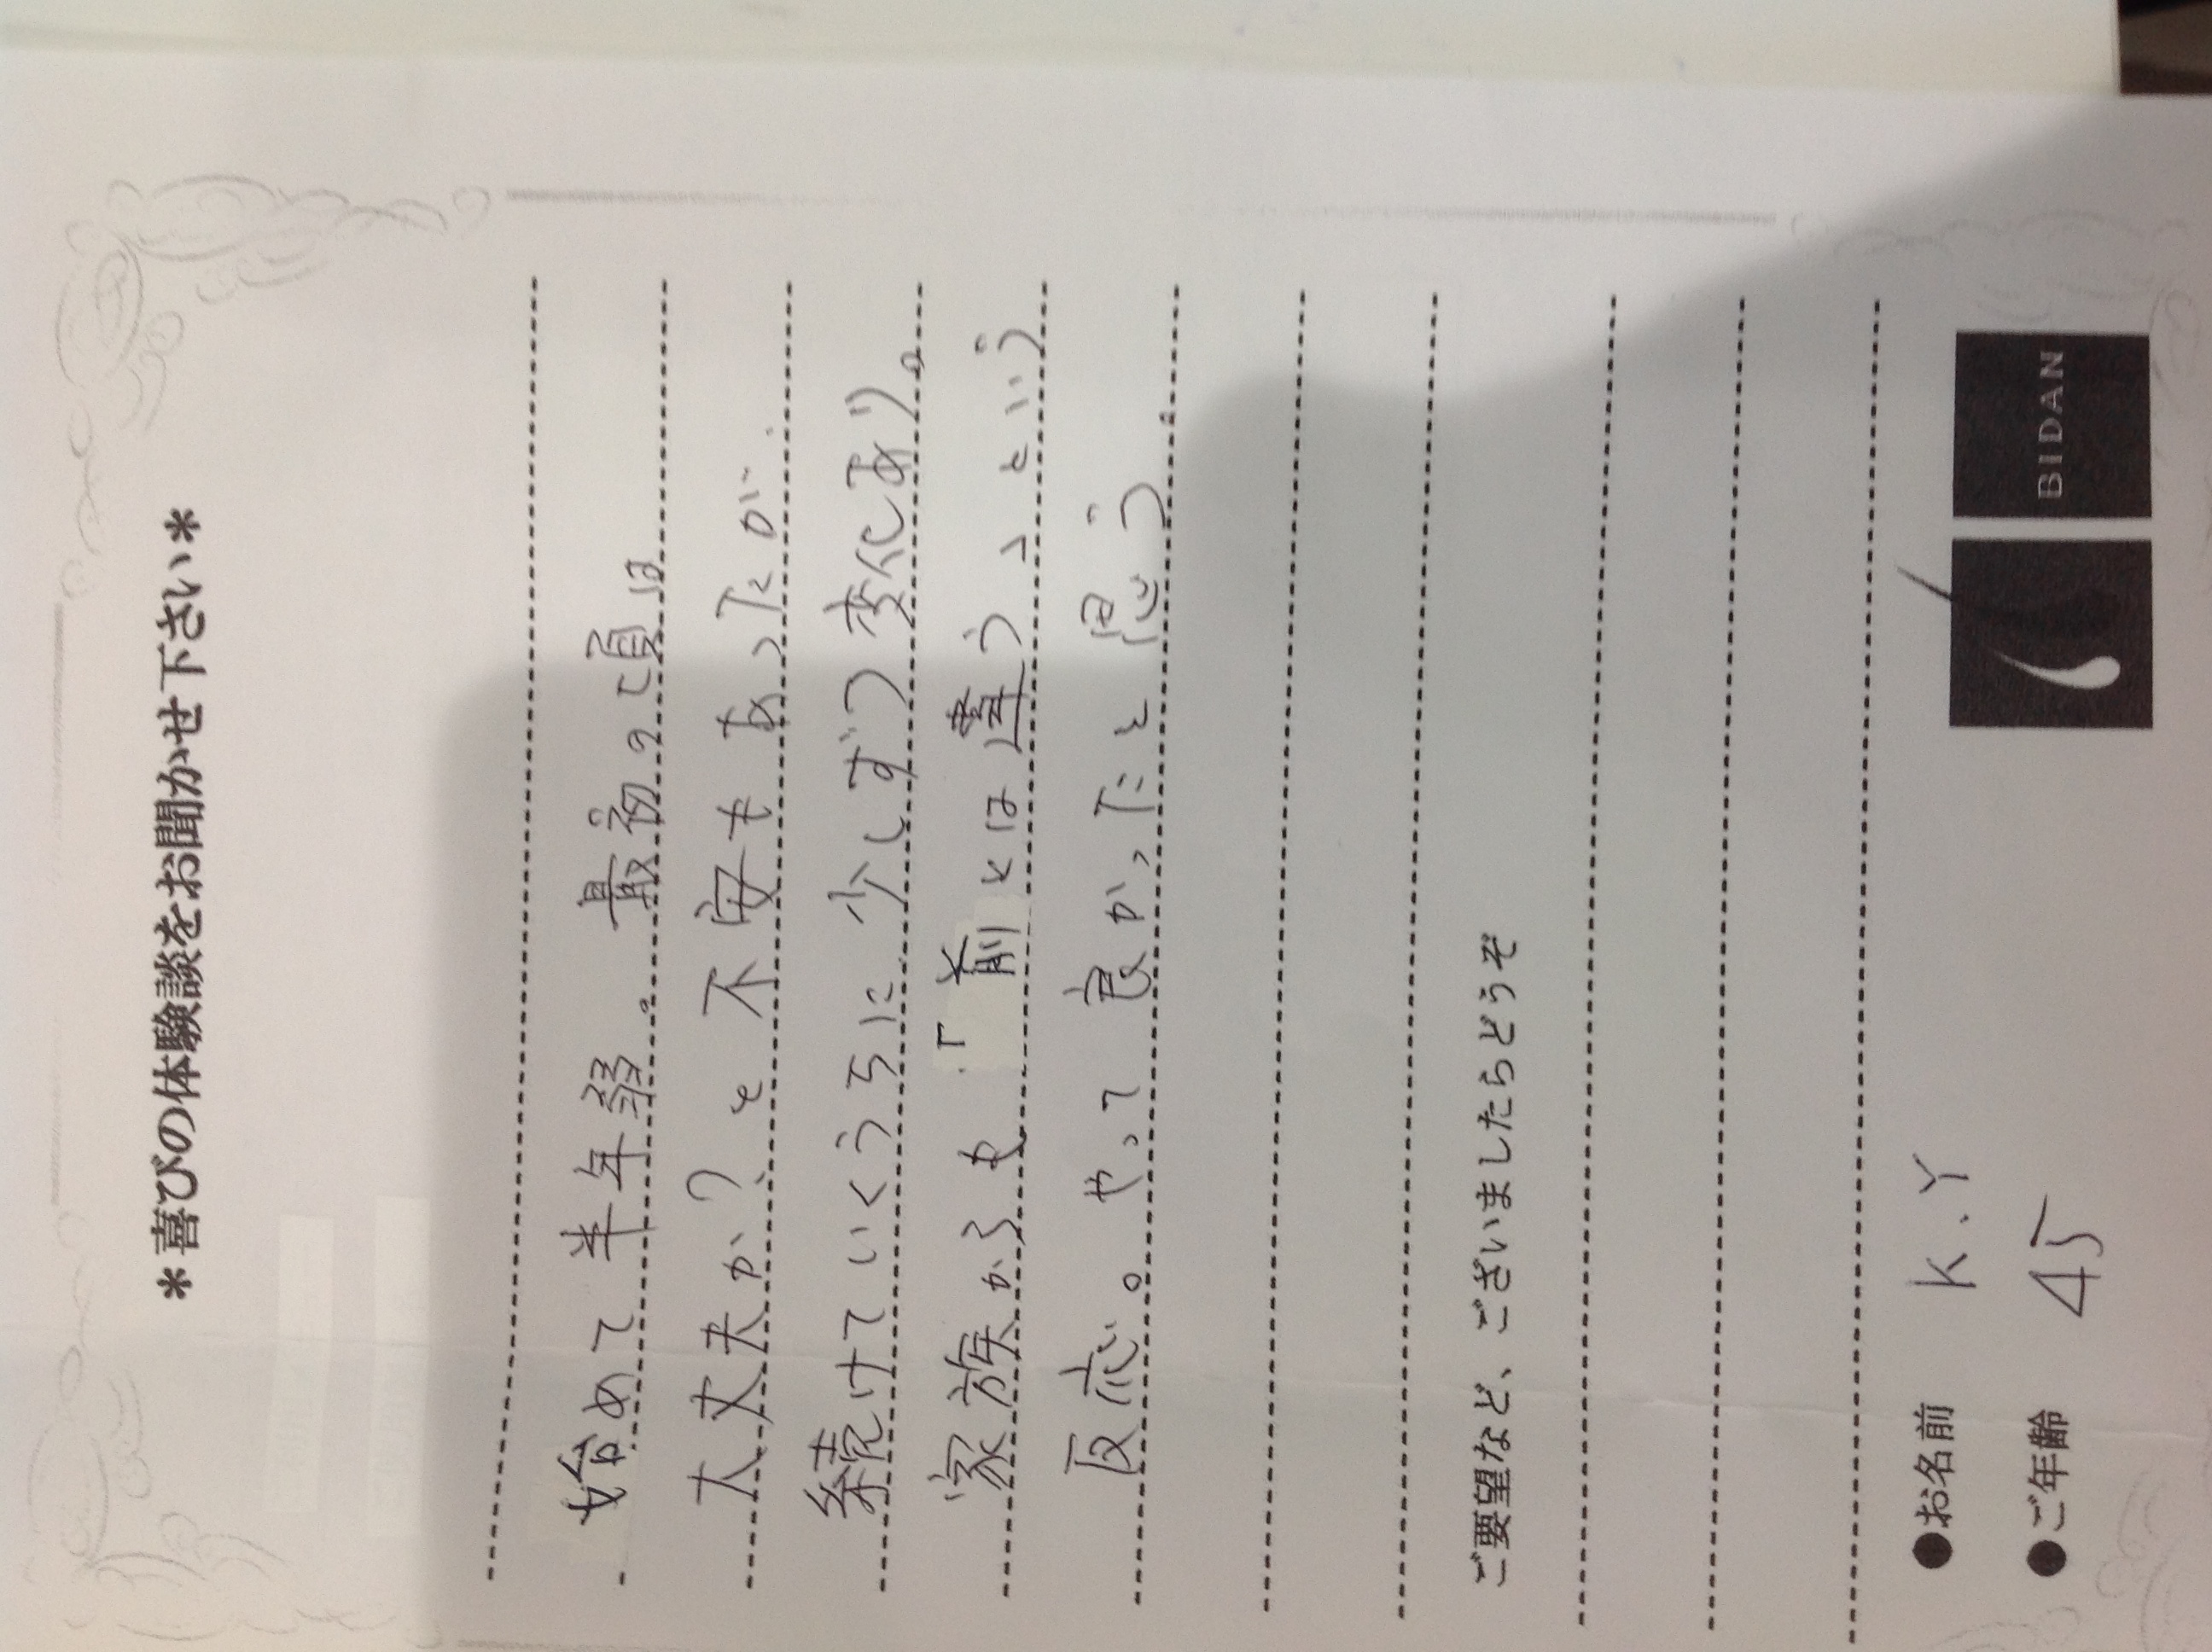 *喜びの体験談をお聞かせ下さい*
始めて半年弱。最初の頃は
大丈夫か?と不安もあったが、
続けていくうちに少しずつ変化あり。
家族からも「前とは違う」という
反応。やって良かったと思う。
ご要望など、ございましたらどうぞ
●お名前 K.Y
●ご年齢 45
BIDAN